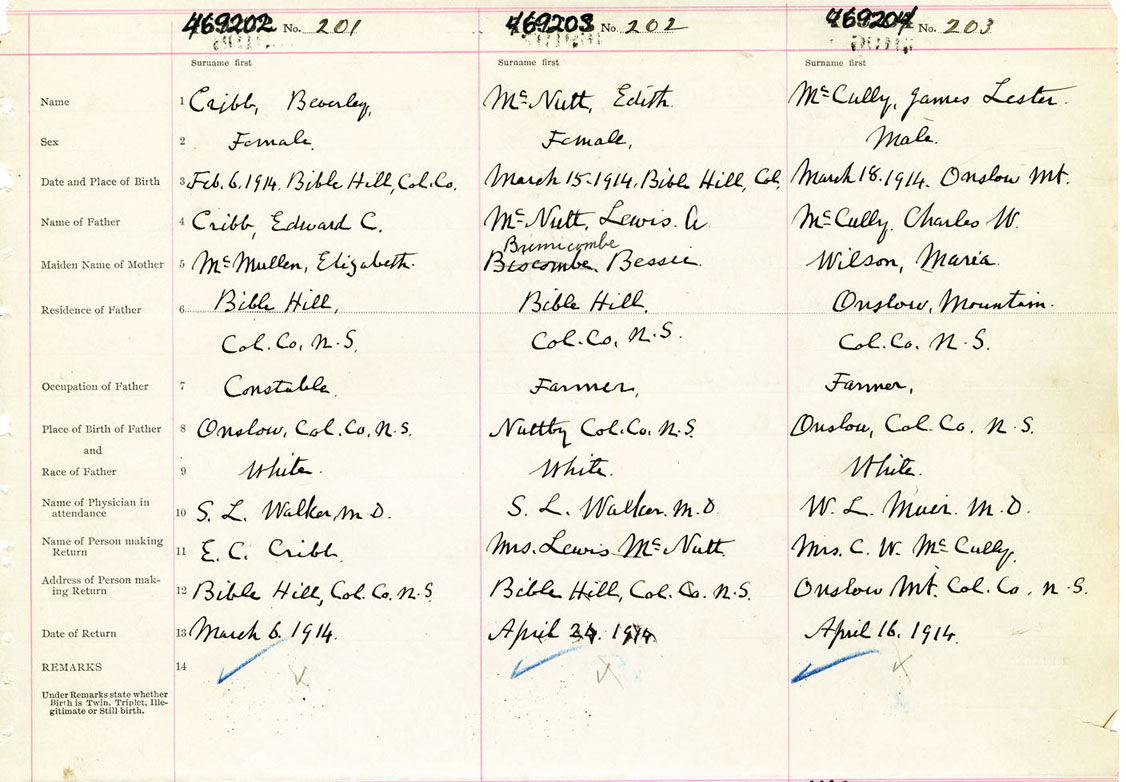 469202 No. 201 469203 No. 202 469204 No. 203
Surname first Surname first Surname first
Name 1 Cribb, Beverley, McNutt, Edith. McCully, James Lester.
Sex 2 Female. Female, Male.
Date and Place of Birth 3 Feb. 6. 1914. Bible Hill, Col. Co. March 15-1914. Bible Hill, Col. March 18. 1914. Onslow Mt.
Name of Father 4 Cribb, Edward C. McNutt, Lewis. A McCully, Charles W.
Brimicombe
Maiden Name of Mother 5 McMullen, Elizabeth. Biscombe, Bessie. Wilson, Maria.
Residence of Father 6 Bible Hill, Bible Hill, Onslow, Mountain.
Col. Co, N.S. Col. Co, N.S. Col. Co. N.S.
Occupation of Father 7 Constable. Farmer, Farmer,
Place of Birth of Father 8 Onslow, Col. Co, N.S. Nuttby Col. Co. N.S. Onslow, Col. Co. N.S.
and
Race of Father 9 White. White. White.
Name of Physician in
attendance 10 S. L. Walker, M.D. S. L. Walker. M.D. W. L. Muir. M.D.
Name of Person making
Return 11 E. C. Cribb. Mrs. Lewis McNutt. Mrs. C. W. McCully.
Address of Person mak-
ing Return 12 Bible Hill, Col. Co. N.S. Bible Hill, Col. Co. N.S. Onslow Mt. Col. Co, N.S.
Date of Return 13 March 6. 1914. April 24. 1914 April 16. 1914.
REMARKS 14
Under Remarks state whether
Birth is Twin, Triplet, Ille-
gitimate or Still-birth.